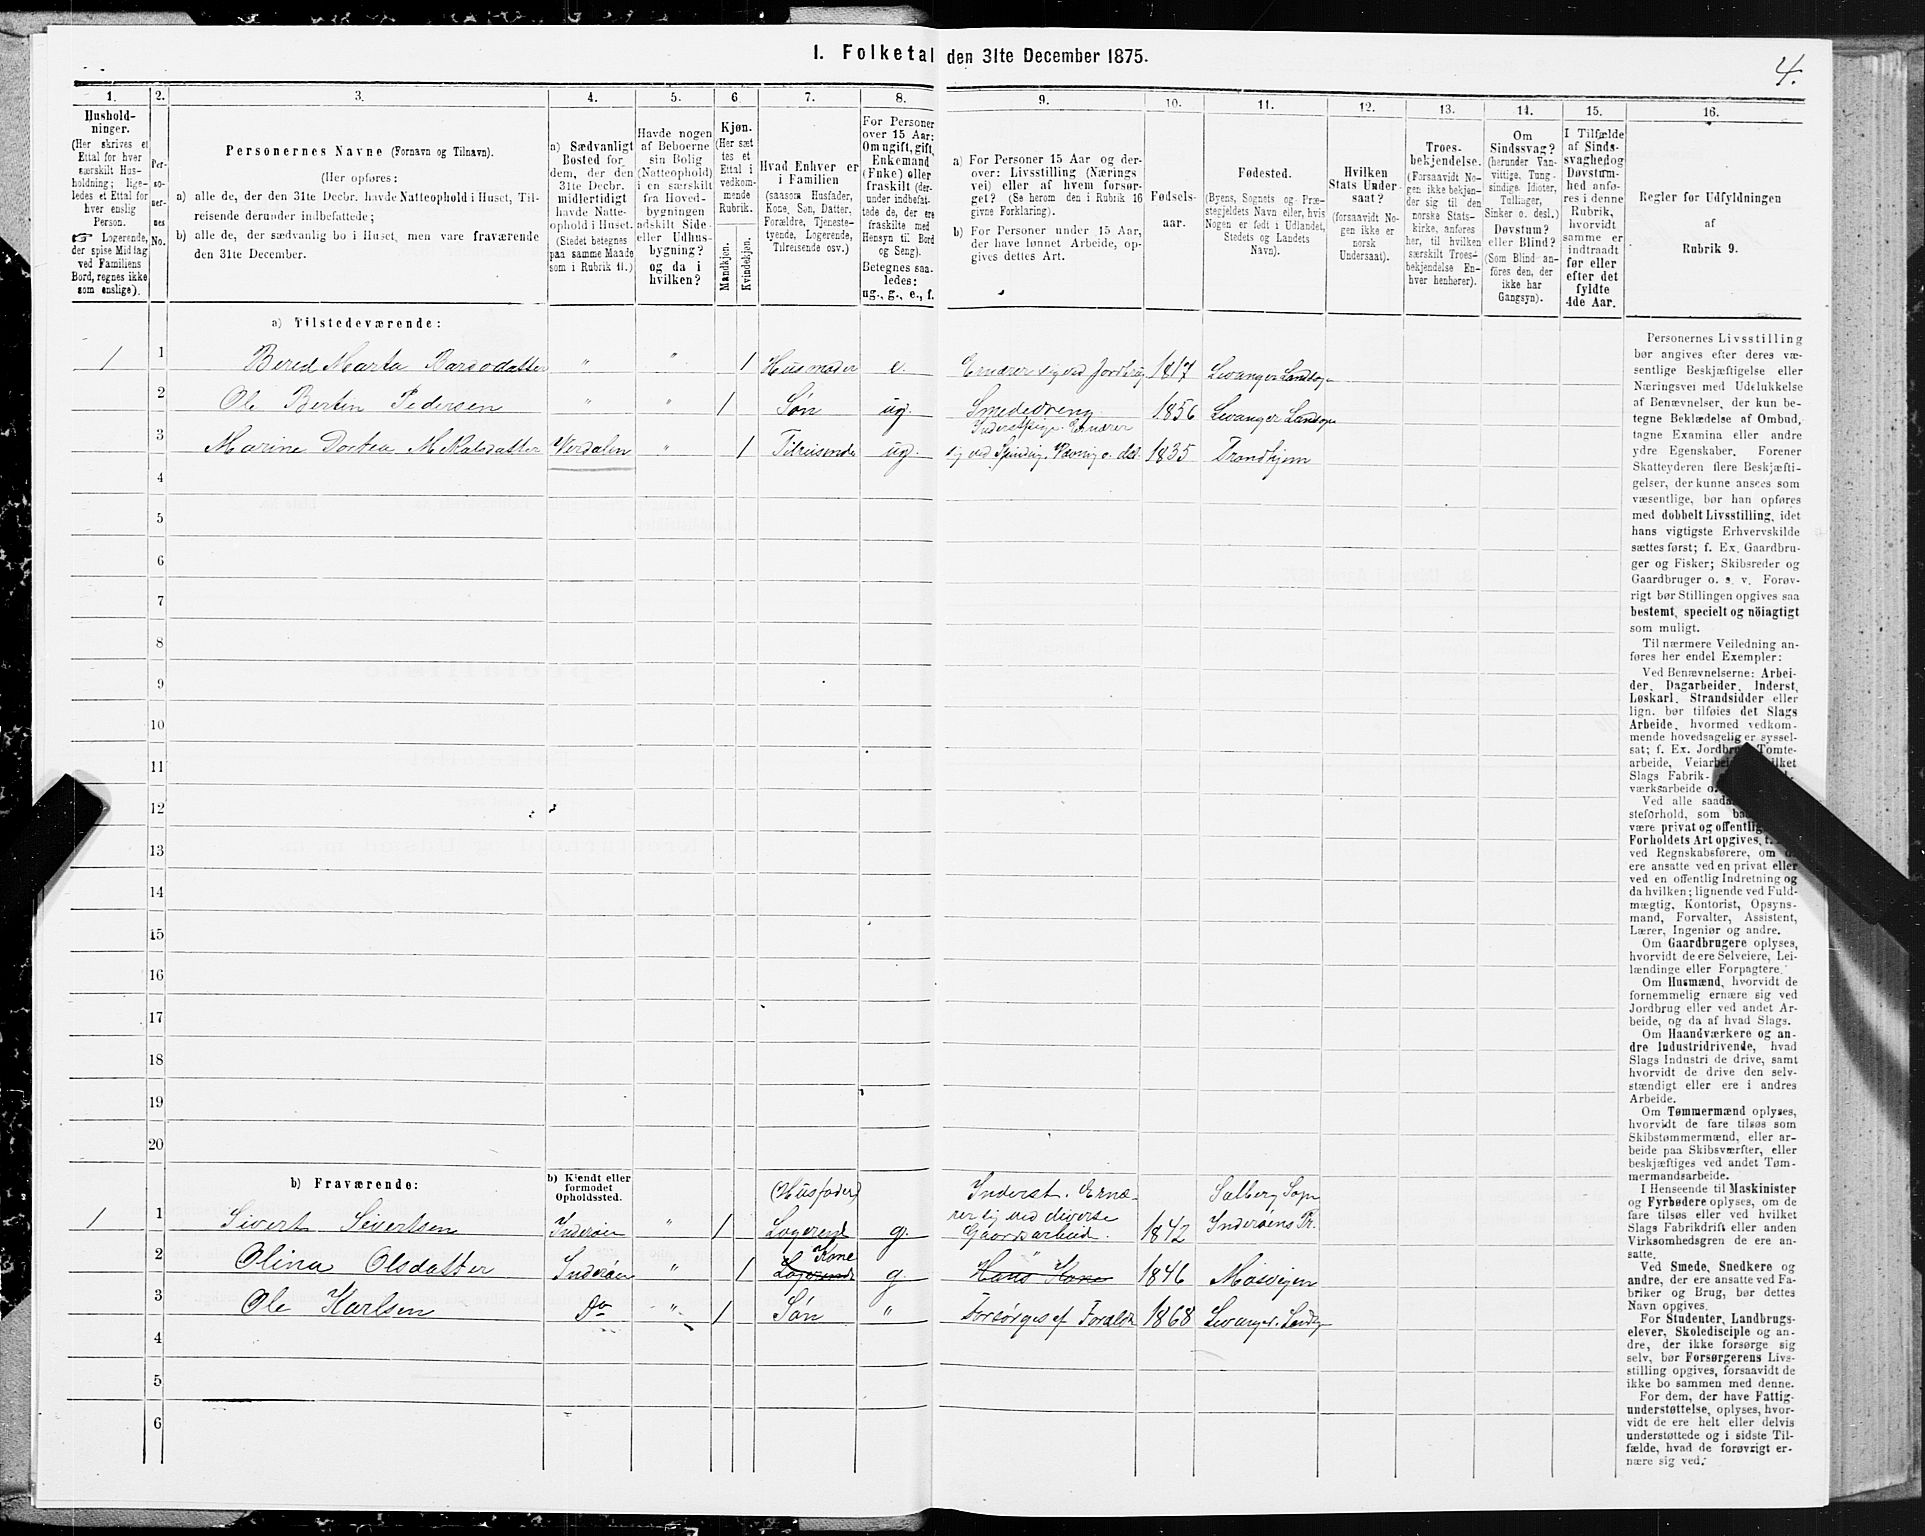 I. Folketal den 31te December 1875.
4.
1. 2. 3. 4. 5. 6 7. 8. 9. 10. 11. 12. 13. 14. 15. 16.
Hushold-
ninger.
(Her skrives et
Ettal for hver
særskilt Hus-
holdning; lige-
ledes et Ettal for
hver enslig
Person.
☞ Logerende,
der spise Middag
ved Familiens
Bord, regnes ikke
som enslige).
Per-
so-
ner-
nes
No.
Personernes Navne (Fornavn og Tilnavn).
(Her opføres:
a) alle de, der den 31te Decbr. havde Natteophold i Huset, Til-
reisende derunder indbefattede;
b) alle de, der sædvanlig bo i Huset, men vare fraværende
den 31te December.
a) Sædvanligt
Bosted for
dem, der den
31te Decbr.
midlertidigt
havde Natte-
ophold i Huset.
(Stedet betegnes
paa samme Maade
som i Rubrik 11.)
Havde nogen
af Beboerne
sin Bolig
(Natteophold)
i en særskilt
fra Hoved-
bygningen
adskilt Side-
eller Udhus-
bygning?
og da i
hvilken?
Kjøn.
(Her sæt-
tes et
Ettal i
vedkom-
mende
Rubrik.
Mandkjøn.
Kvindekjøn.
Hvad Enhver er
i Familien
(saasom Husfader,
Kone, Søn, Datter,
Forældre, Tjeneste-
tyende, Logerende,
Tilreisende osv.)
For Personer
over 15 Aar:
Om ugift, gift,
Enkemand
(Enke) eller
fraskilt (der-
under indbefat-
tede de, der ere
fraskilte med
Hensyn til Bord
og Seng).
Betegnes saa-
ledes:
ug., g., e., f.
a) For Personer 15 Aar og der-
over: Livsstilling (Nærings
vei) eller af hvem forsør-
get? (Se herom den i Rubrik 16
givne Forklaring).
b) For Personer under 15 Aar,
der have lønnet Arbeide, op-
gives dettes Art.
Fødsels-
aar.
Fødested.
(Byens, Sognets og Præ-
stegjeldets Navn eller, hvis
Nogen er født i Udlandet,
Stedets og Landets
Navn).
Hvilken
Stats Under-
saat?
(forsaavidt No-
gen ikke er
norsk
Undersaat).
Troes-
bekjendelse.
(Forsaavidt No-
gen ikke bekjen-
der sig til den
norske Stats-
kirke, anføres
her, til hvilken
særskilt Troes-
bekjendelse En-
hver henhører).
Om
Sindssvag?
(herunder Van-
vittige, Tung-
sindige, Idioter,
Tullinger,
Sinker o. desl.)
Døvstum?
eller Blind?
(Som Blind an-
føres den, der
ikke har
Gangsyn).
I Tilfælde
af Sinds-
svaghed og
Døvstum-
hed anfø-
res i denne
Rubrik,
hvorvidt
samme er
indtraadt
før eller
efter det
fyldte
4de Aar.
Regler for Udfyldningen
af
Rubrik 9.
a) Tilstedeværende:
1 1 Bered Marta Bardodatter " " 1 Husmoder e. Ernærer sig ved Jordbrug 1817 Levanger Landsogn
2 Ole Bertin Pedersen " " 1 Søn ug. Smededreng 1856 Levanger Landsogn
Inderstpige. Ernærer
3 Marine Dortea M. Kolsdatter Verdalen " 1 Tilreisende ug. sig ved Spinding, Vævning o. desl. 1835 Trondhjem
4
5
6
7
8
9
10
11
12
13
14
15
16
17
18
19
20
b) Fraværende:
b) Kjendt eller
formodet
Opholdssted.
(Husfader) Inderst. Ernæ- Salberg Sogn
1 1 Sivert Sivertsen Inderøen " 1 Logerend g. rer sig ved diverse Gaardsarbeid. 1842 Inderøens Pr.
Kone
2 Olina Olsdatter Inderøen " 1 Logerende g. Hans Kone 1846 Mosvigen
3 Ole Karlsen Do " 1 Søn " Forsørges af Foræld. 1868 Levanger Landsogn
4
5
6
Personernes Livsstilling
bør angives efter deres væ-
sentlige Beskjæftigelse eller
Næringsvei med Udelukkelse
af Benævnelser, der kun be-
tegne Beklædelse af Ombud,
tagne Examina eller andre
ydre Egenskaber. Forener
Skatteyderen flere Beskjæfti-
gelser, der kunne ansees som
væsentlige, bør han opføres
med dobbelt Livsstilling, idet
hans vigtigste Erhvervskilde
sættes først; f. Ex. Gaardbru-
ger og Fisker; Skibsreder og
Gaardbruger o. s. v. Forøv-
rigt bør Stillingen opgives saa
bestemt, specielt og nöiagtigt
som muligt.
Til nærmere Veiledning an-
føres her endel Exempler:
Ved Benævnelserne: Arbei-
der, Dagarbeider, Inderst,
Løskarl, Strandsidder eller
lign. bør tilføies det Slags
Arbeide, hvormed vedkom-
mende hovedsagelig er syssel-
sat; f. Ex. Jordbrug, Tomte-
arbeide, Veiarbeide, hvilket
Slags Fabrik-
værksarbeide o.
Ved alle saada
steforhold, som
være privat og offentlig,
Forholdets Art opgives, t.
ved Regnskabsførere, om
ere ansatte ved en privat eller
ved en offentlig Indretning og
da hvilken; lignende ved Fuld-
mægtig, Kontorist, Opsyns-
mand, Forvalter, Assistent,
Lærer, Ingeniør og andre.
Om Gaardbrugere oplyses,
hvorvidt de ere Selveiere, Lei-
lændinge eller Forpagtere.
Om Husmænd, hvorvidt de
fornemmelig ernære sig ved
Jordbrug eller ved andet Ar-
beide, og da af hvad Slags.
Om Haandværkere og an-
dre Industridrivende, hvad
Slags Industri de drive, samt
hvorvidt de drive den selv-
stændigt eller ere i andres
Arbeide.
Om Tømmermænd oplyses,
hvorvidt de fare tilsøs som
Skibstømmermænd, eller ar-
beide paa Skibsværfter, eller
beskjæftiges ved andet Tøm-
mermandsarbeide.
I Henseende til Maskinister
og Fyrbødere oplyses, om de
fare tilsøs eller ved hvilket
Slags Fabrikdrift eller anden
Virksomhedsgren de ere an-
satte.
Ved Smede, Snedkere og
andre, der ere ansatte ved Fa-
briker og Brug, bør dettes
Navn opgives.
For Studenter, Landbrugs-
elever, Skoledisciple og an-
dre, der ikke forsørge sig
selv, bør Forsørgerens Livs-
stilling opgives, forsaavidt de
ikke bo sammen med denne.
For dem, der have Fattig-
understøttelse, oplyses, hvor-
vidt de ere helt eller delvis
understøttede og i sidste Til-
fælde, hvad de forøvrigt er-
nære sig ved.